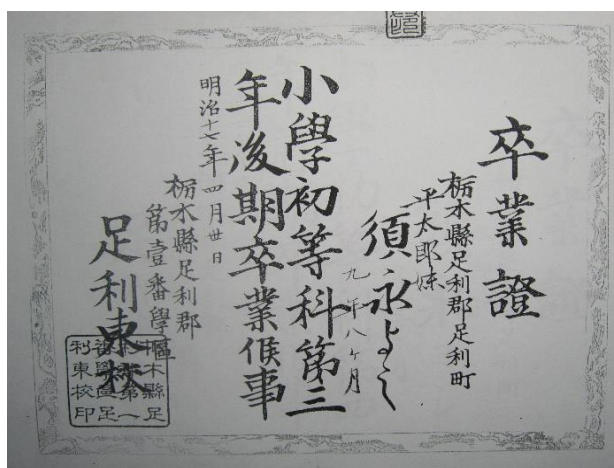 卒業證
栃木縣足利郡足利町
平太郎妹
須永よし
九年八ヶ月
小學初等科第三
年後期卒業候事
明治十七年四月廿日
栃木縣足利郡
第壹番學區
足利東校